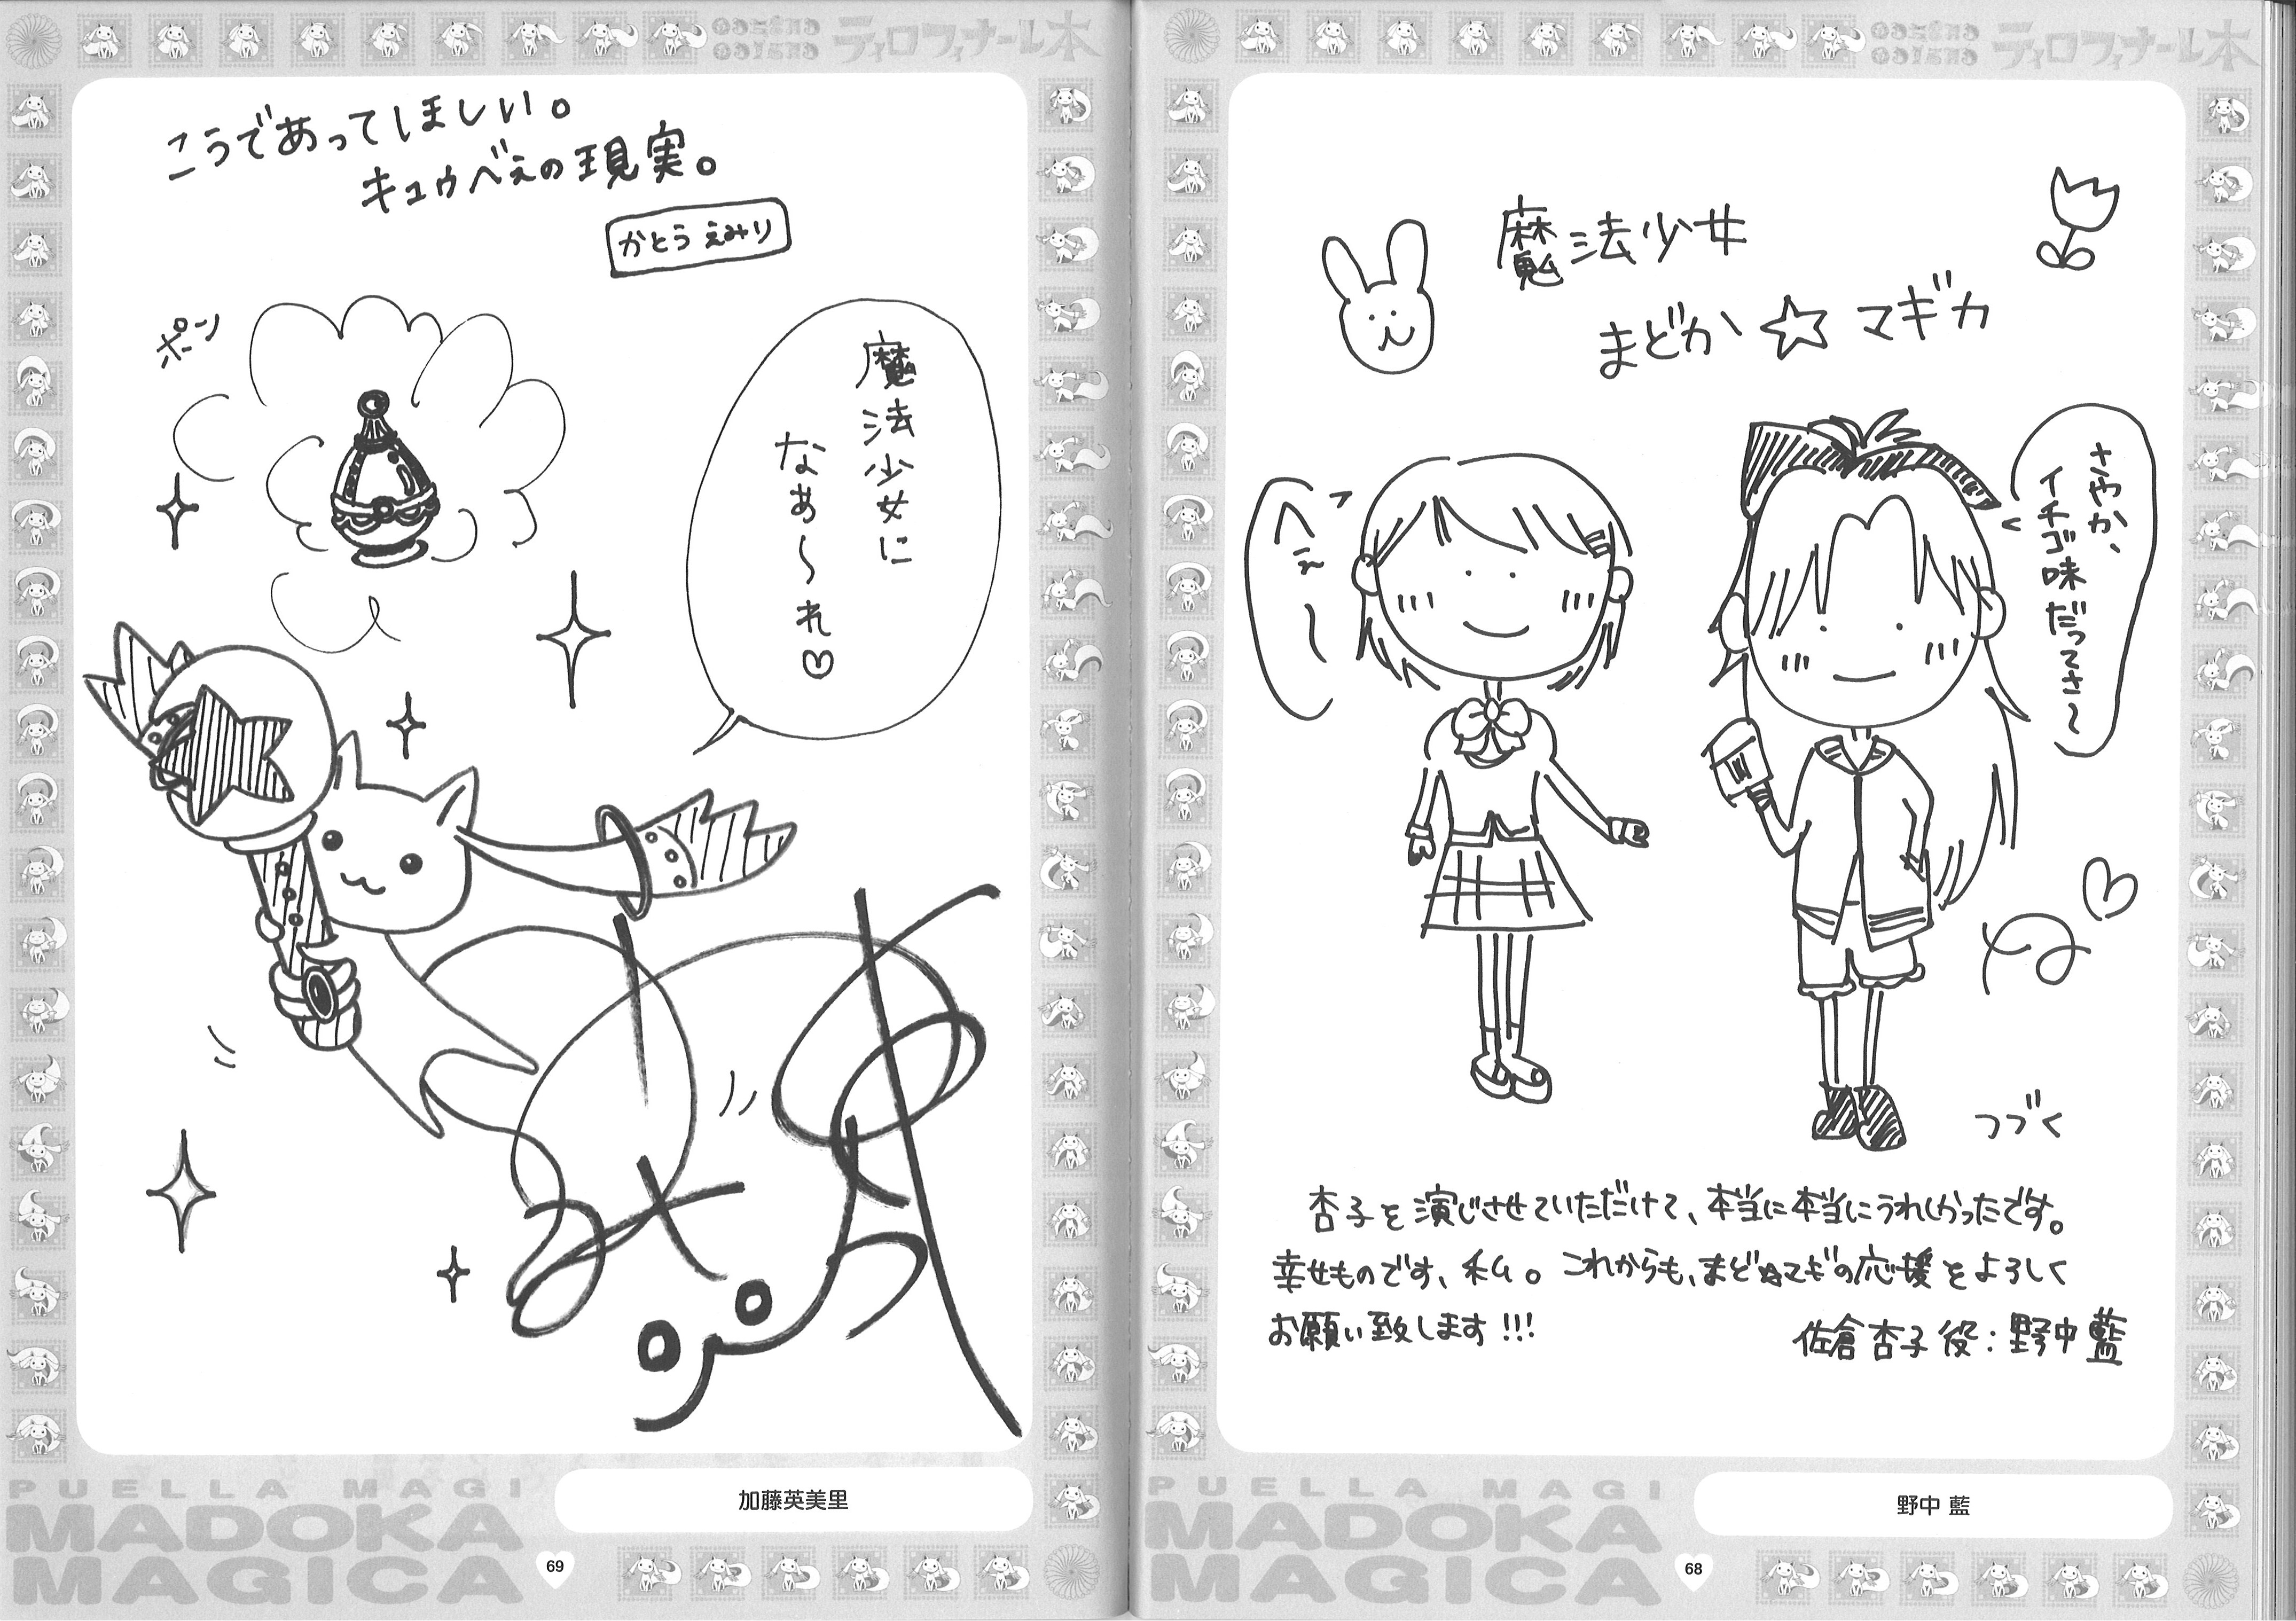 ティロフィナーレ本
魔法少女
まどか☆マギカ
さやか、
イチゴ味だってさ〜
へぇ〜
つづく
杏子を演じさせていただけて、本当に本当にうれしかったです。
幸せものです、私。これからも、まどか☆マギカの応援をよろしく
お願い致します!!!
佐倉杏子役:野中藍
野中 藍
PUELLA MAGI
MADOKA
MAGICA
68
ティロフィナーレ本
こうであってほしい。
キュゥべぇの現実。
かとうえみり
ポーン
魔法少女に
なぁ〜れ♡
加藤英美里
PUELLA MAGI
MADOKA
MAGICA
69